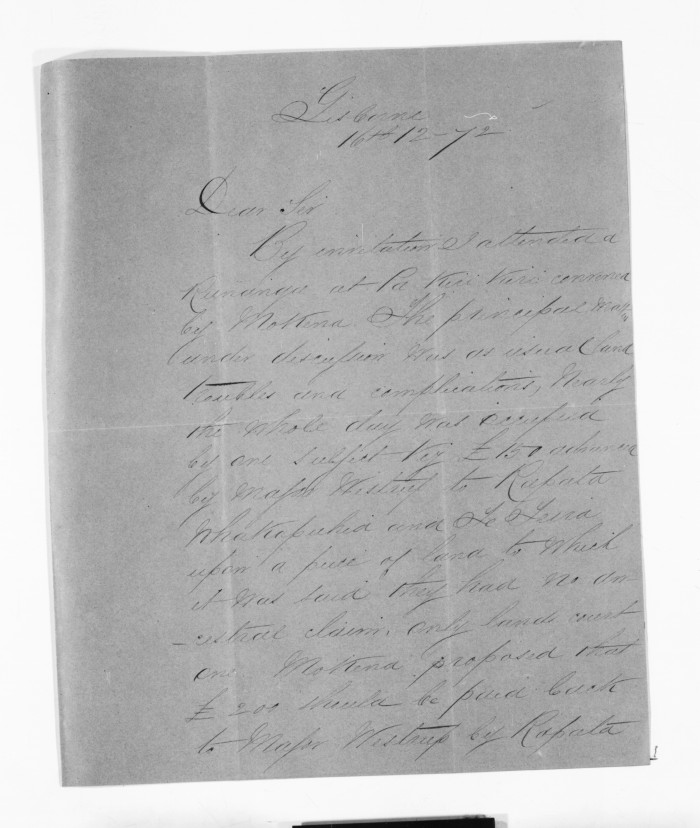 Gisborne
16th 12-72
Dear Sir
By invitation I attended a
Runanga at Pa Kuri Kuri convened
by Mokena The principal matter
under discussion was as usual land
troubles and complications, Nearly
the whole day was occupied
by one subject viz £150 advanced
by Major Westrup to Rapata
Whakapuhia and Te Teira
upon a piece of land to which
it was said they had no an-
-cestral claim, only land court
one Mokena proposed that
£200 should be paid back
to Major Westrup by Rapata